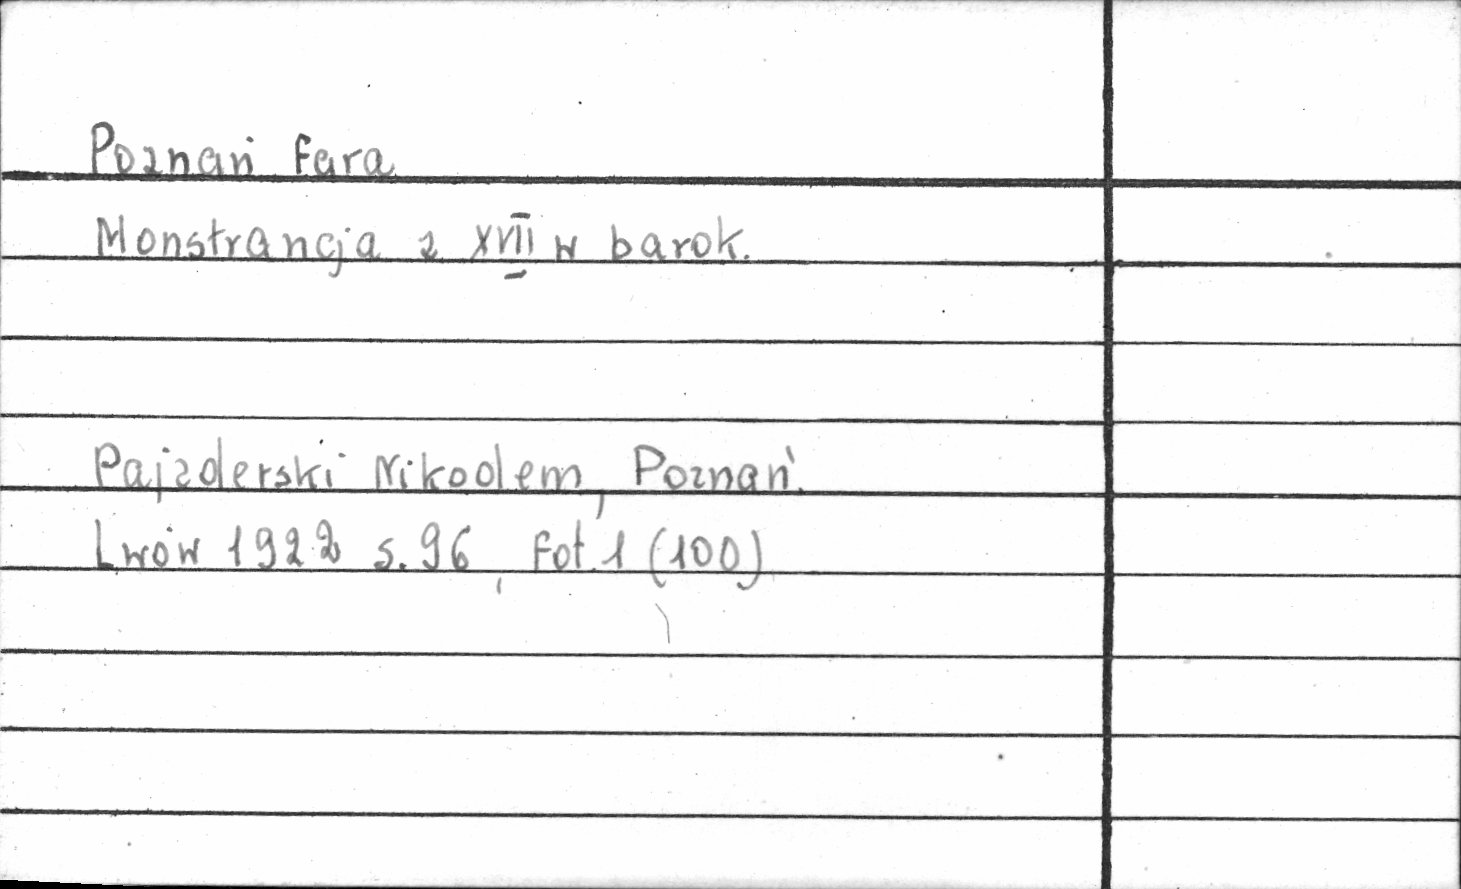 Poznań Fara
Monstrancja z XVII w barok.
Pajzderski Nikodem, Poznań.
Lwów 1922 s. 96, Fot. 1 (100)